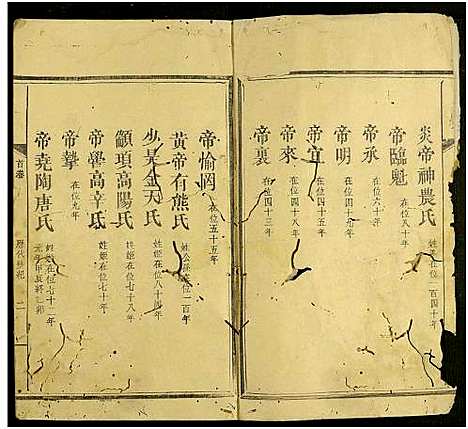 炎帝神農氏 姓姜在位一百四十年
帝臨魁 在位八十年
帝承 在位六十年
帝明 在位四十九年
帝宜 在位四十五年
帝來 在位四十八年
帝裏 在位四十三年
帝愉罔 在位五十五年
黃帝有熊氏 姓公孫在位一百年
少昊金天氏 姓姬在位八十四年
顓頊高陽氏 姓姬在位七十八年
帝嚳高辛氏 姓姬在位七十年
帝摯 在位九年
帝堯陶唐氏 在位七十二年 元年甲辰
首卷 歷代世紀 二